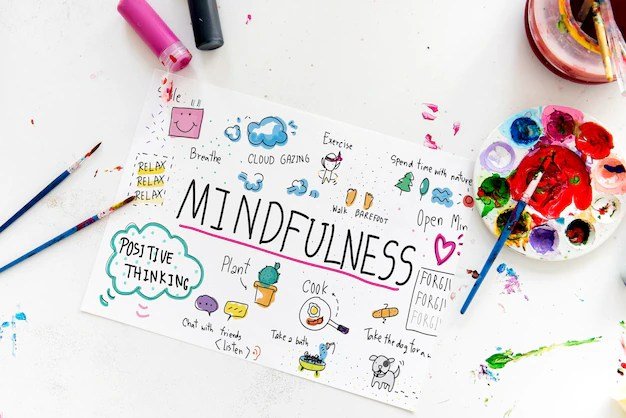 Exercise
Breathe
CLOUD GAZING
Spend time with nature
RELAX
RELAX
RELAX
Walk BAREFOOT
Open
MINDFULNESS
POSITIVE
THINKING
Plant
Cook
FORG
FORG
FORG
Chat with friends
(Listen)
Take a bath
Take the dog for a